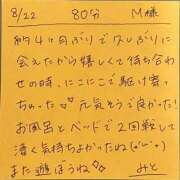 8/22 80分 M様
約4ヶ月ぶりで久しぶりに
会えたから嬉しくて待ち合わ
せの時、にこにこで駆け寄っ
ちゃった♡元気そうで良かった!
お風呂とベッドで2回戦して
凄く気持ちよかったね(๑'ᴗ'๑)
また遊ぼうね♡ みと